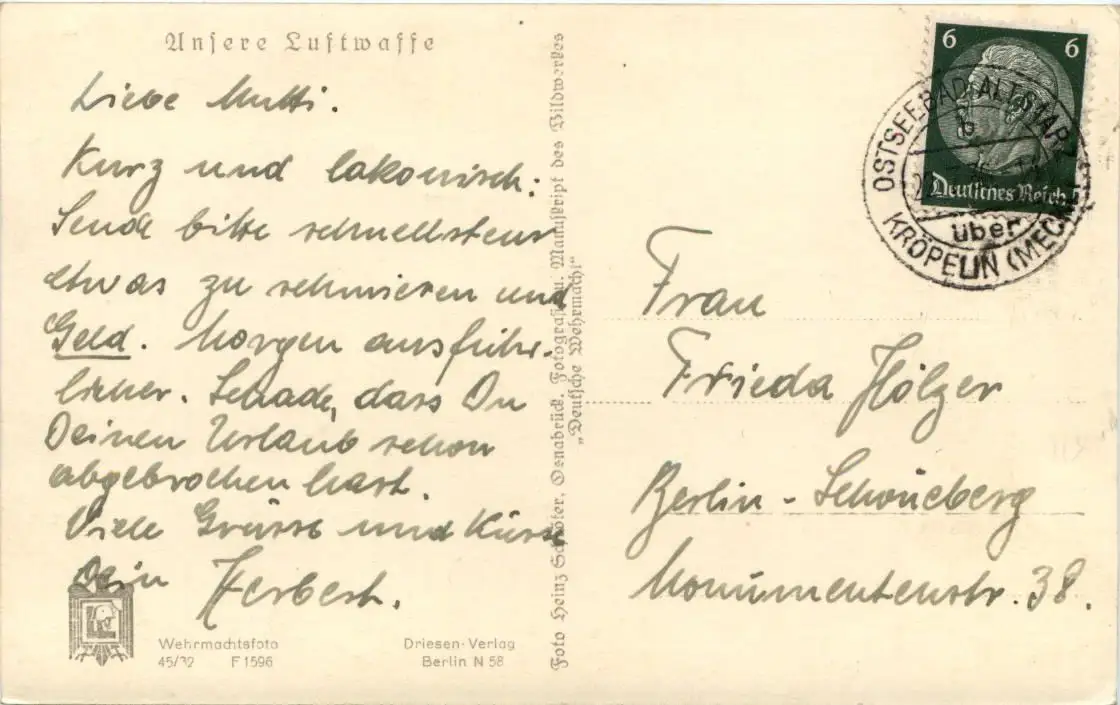 Unsere Luftwaffe
Liebe Mutti.
Kurz und lakonisch:
Sende bitte schnellstens
etwas zu schmieren und
Geld. Morgen ausführ-
licher. Schade, dass Du
Deinen Urlaub schon
abgebrochen hast.
Viele Grüsse und Küsse
Dein Herbert.
Wehrmachtsfoto
45/32 F 1596
Driesen-Verlag
Berlin N 58
Foto Heinz Schröter, Osnabrück. Fotograf u. Manuskript des Bildwerkes
„Deutsche Wehrmacht“
6 6
Deutsches Reich
OSTSEEBAD ALT
über
KRÖPELIN (MECK
Frau
Frieda Hölzer
Berlin - Schöneberg
Monumentenstr. 38.